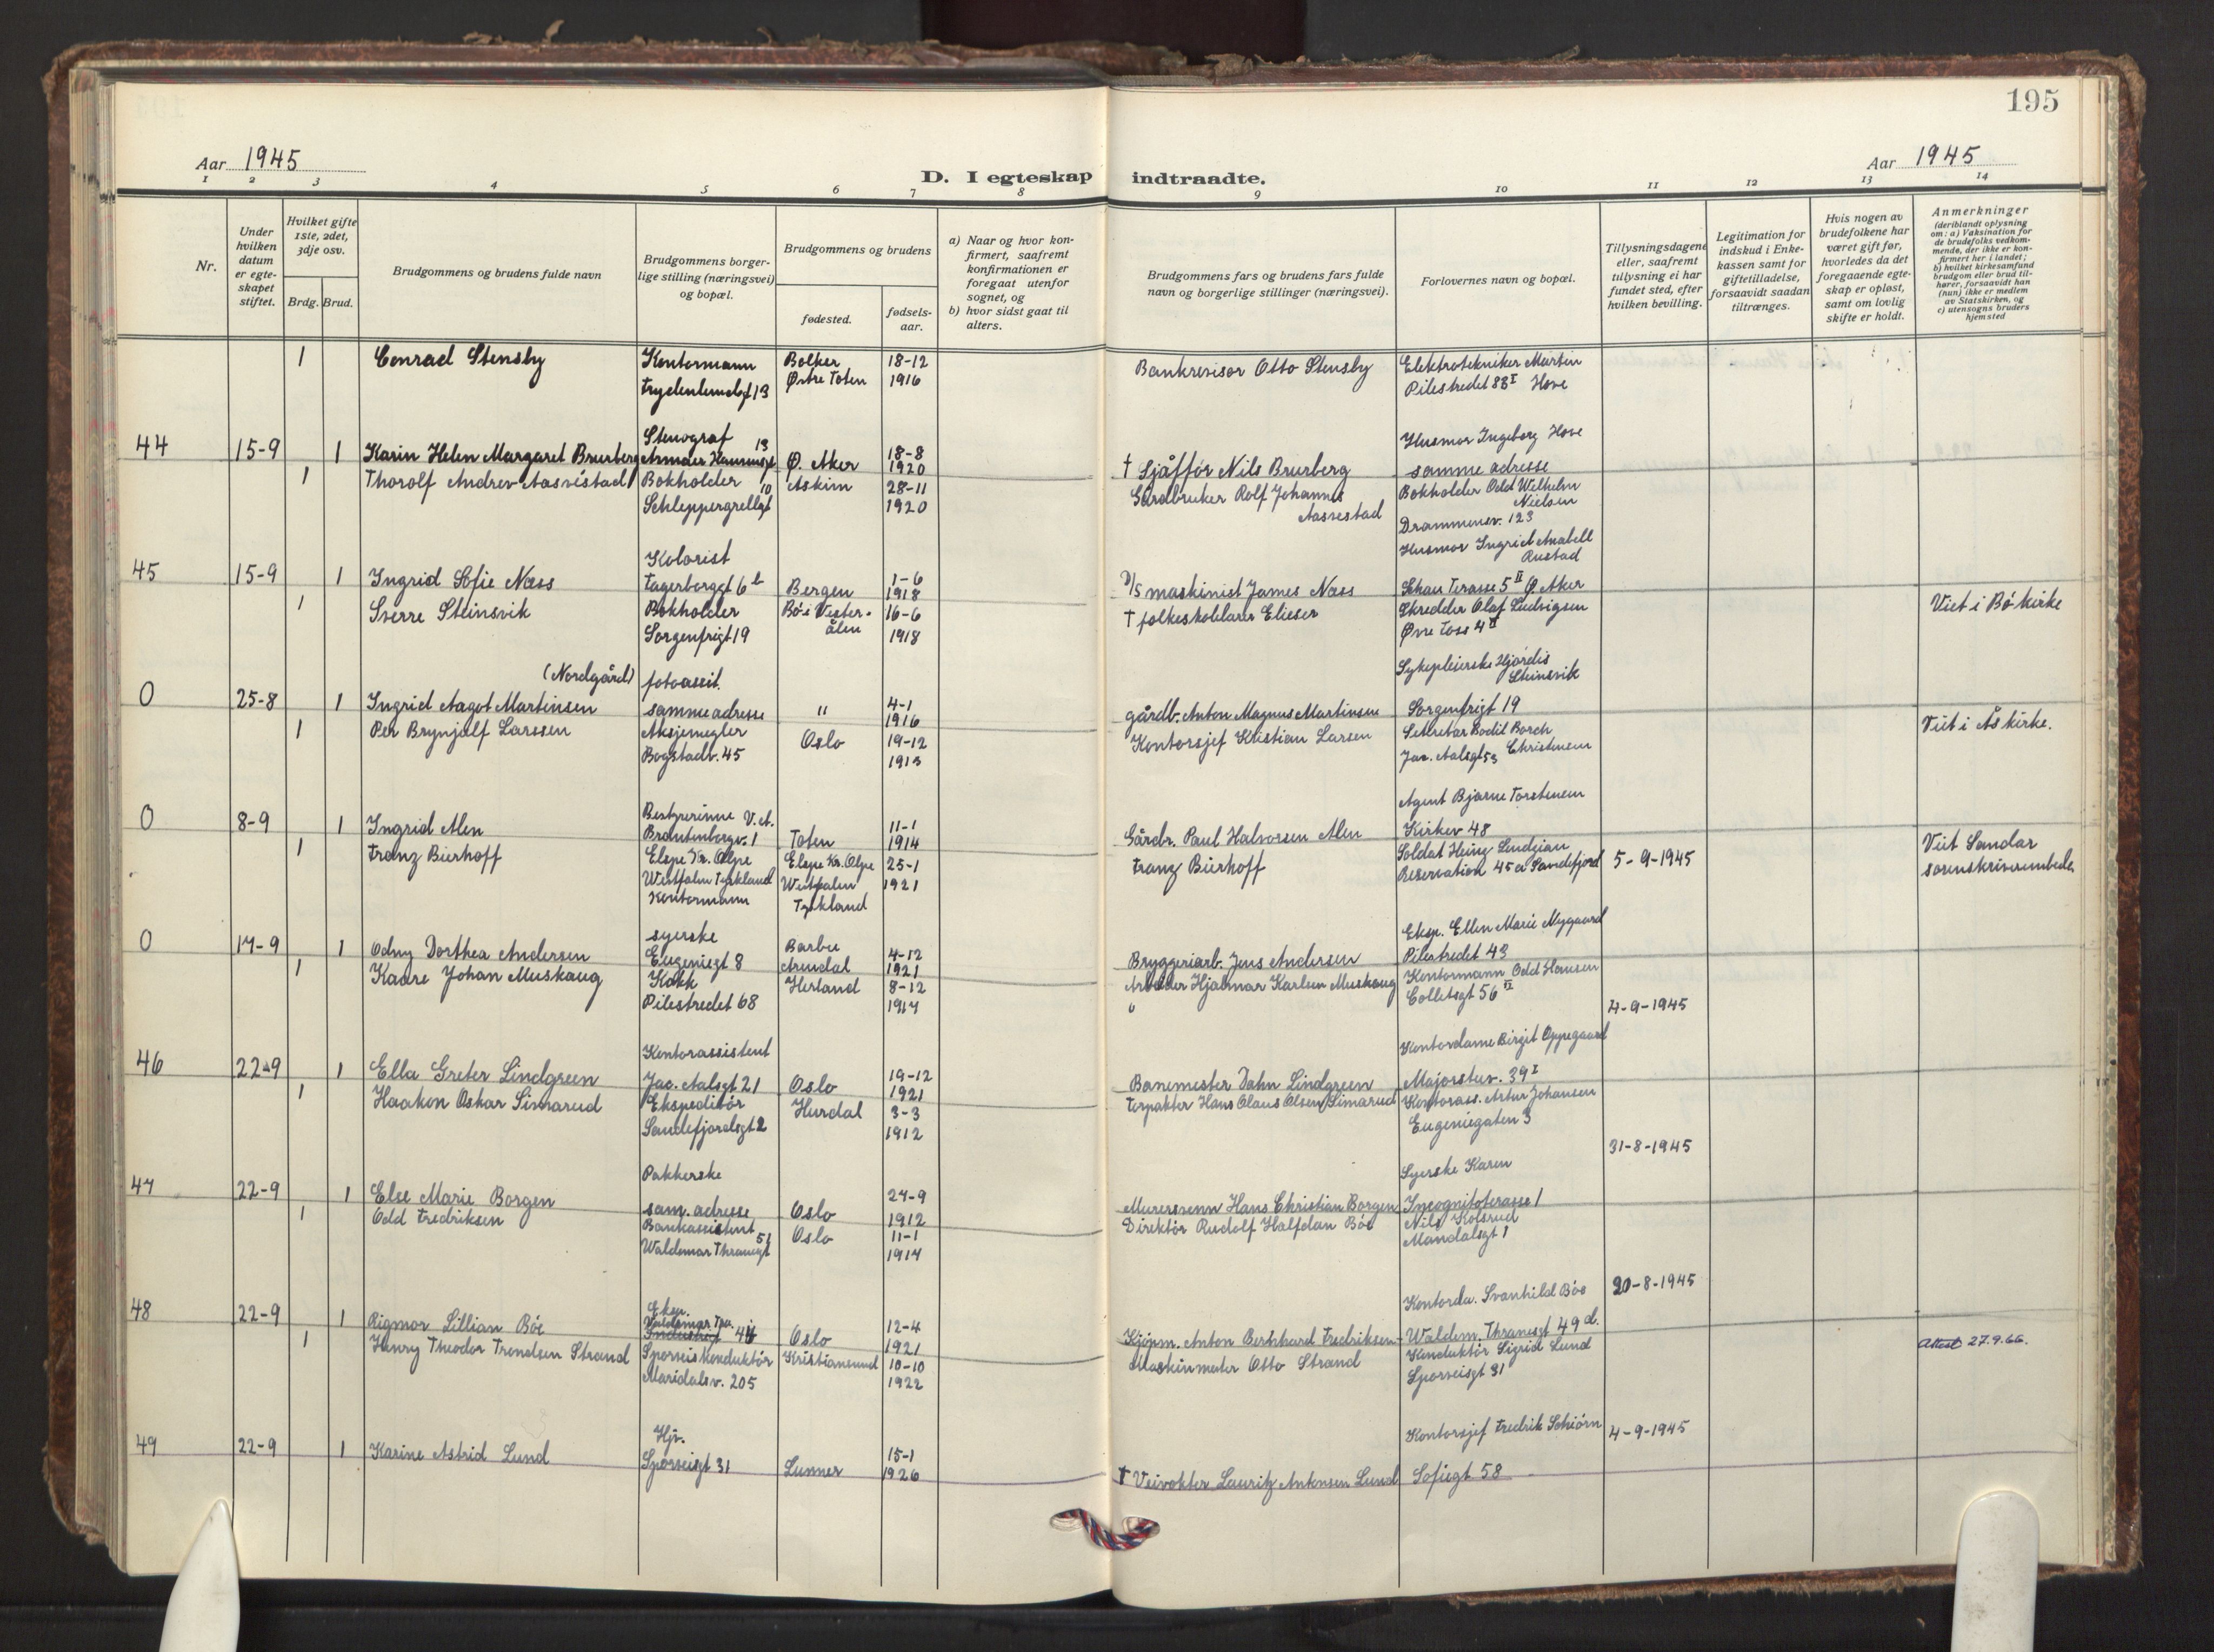 195
Aar 1945
D. I egteskap indtraadte.
Aar 1945
1 2 3 4 5 6 7 8 9 10 11 12 13 14
Nr.
Under hvilken datum er egteskapet stiftet.
Hvilket gifte 1ste, 2det, 3dje osv.
Brdg. Brud.
Brudgommens og brudens fulde navn
Brudgommens borgerlige stilling (næringsvei) og bopæl.
Brudgommens og brudens
fødested.
fødselsaar.
a) Naar og hvor konfirmert, saafremt konfirmationen er foregaat utenfor sognet, og
b) hvor sidst gaat til alters.
Brudgommens fars og brudens fars fulde navn og borgerlige stillinger (næringsvei).
Forlovernes navn og bopæl.
Tillysningsdagene eller, saafremt tillysning ei har fundet sted, efter hvilken bevilling.
Legitimation for indskud i Enkekassen samt for giftetilladelse, forsaavidt saadan tiltrænges.
Hvis nogen av brudefolkene har været gift før, hvorledes da det foregaaende egteskap er opløst, samt om lovlig skifte er holdt.
Anmerkninger (deriblandt oplysning om: a) Vaksination for de brudefolks vedkommende, der ikke er konfirmert her i landet; b) hvilket kirkesamfund brudgom eller brud tilhører, forsaavidt han (hun) ikke er medlem av Statskirken, og c) utensogns bruders hjemsted
1 Conrad Stensby Kontormann Bolker 18-12 Bankrevisor Otto Stensby Elektrotekniker Martin
13 Østre Toten 1916 Pilestredet 88 I Hove
Stenograf Husmor Ingeborg Hove
44 15-9 1 Karin Helen Margaret Brurberg Armaer Hansensgt 13 Ø. Aker 18-8 1920 † Sjåffør Nils Brurberg samme adresse
1 Thorolf Andrev Aasvistad Bokholder Askim 28-11 Gårdbruker Rolf Johannes Bokholder Odd Wilhelm Nielsen
Schleppergrellgt 10 1920 Aasvestad Drammensv. 123
Kolorist Husmor Ingrid Anabell Rustad
45 15-9 1 Ingrid Sofie Næss Fagerborggt 6 b Bergen 1-6 1918 D/S maskinist James Næss Skau Terasse 5 II Ø. Aker
1 Sverre Steinsvik Bokholder Bø i Vesterålen 16-6 † folkeskolelærer Elieser Skredder Olaf Ludvigsen Viet i Bø kirke
Sorgenfrigt 19 1918 Øvre Foss 4 II
(Nordgård) fotoassit. Sykepleierske Hjørdis Steinsvik
0 25-8 1 Ingrid Aagot Martinsen samme adresse " 4-1 1916 gårdb. Anton Magnus Martinsen Sorgenfrigt 19
1 Per Brynjolf Larssen Aksjemegler Oslo 19-12 Kontorsjef Kristian Larsen Sekretær Bodil Borch Christensen Viet i Ås kirke.
Bogstadv. 45 1913 Jac. Aalsgt 53
Bestyrerinne V.A. Agent Bjarne Torstensen
0 8-9 1 Ingrid Alen Brantenborgv. 1 Toten 11-1 1914 Gårdr. Paul Halvorsen Alen Kirkev 48
1 Franz Bierhoff Elspe Kr. Olpe Elspe Kr. Olpe 25-1 Franz Bierhoff Soldat Heinz 5-9-1945 Viet Sandar
Westfalen Tyskland Westfalen 1921 Reservation 45 a Sandefjord sorenskriverembede
Kontormann Tyskland
syerske Eksp. Ellen Marie Nygaard
0 17-9 1 Odny Dorthea Andersen Eugeniegt 8 Barbu Arendal 4-12 1921 Bryggeriarb. Jens Andersen Pilestredet 43
1 Kaare Johan Muskaug Kokk Herland 8-12 Arbeider Hjalmar Karlsen Muskaug Kontormann Odd Hansen
Pilestredet 68 1917 Colletsgt 56 II 4-9-1945
Kontorassistent Kontordame Birgit Oppegaard
46 22-9 1 Ella Greter Lindgreen Jac. Aalsgt 21 Oslo 19-12 1921 Banemester Dahn Lindgreen Majorstuv. 39 I
1 Haakon Oskar Simarud Ekspeditør Hurdal 3-3 Forpakter Hans Olaus Olsen Simarud Kontorass. Artur Johansen
Sandefjordsgt 2 1912 Eugeniegaten 3
31-8-1945
Pakkerske Syerske Karen
47 22-9 1 Else Marie Borgen sam. adresse Oslo 27-9 1912 Murersvenn Hans Christian Borgen Incognitoterasse 1
1 Odd Fredriksen Bankassistent Oslo 11-1 Direktør Rudolf Halfdan Bøe Nils Kolsrud
Waldemar Thranesgt 51 1914 Mandalsgt 1
20-8-1945
Eksp. Kontorda. Svanhild Bøe
48 22-9 1 Rigmor Lillian Bøe Valdemar Thr. 44 Oslo 12-4 1921 Kjøpm. Anton Bernhard Fredriksen Waldem. Thranesgt 49 d.
1 Henry Theodor Trondsen Strand Sporveiskonduktør Kristiansund 10-10 Maskinmester Otto Strand Konduktør Sigrid Lund Attest 27.9.66.
Maridalsv. 205 1922 Sporveisgt 31
Hjv. Kontorsjef Fredrik Schiørn 4-9-1945
49 22-9 1 Karine Astrid Lund Sporveisgt 31 Lunner 15-1 1926 † Veivokter Lauritz Antonsen Lund Sofiegt 58